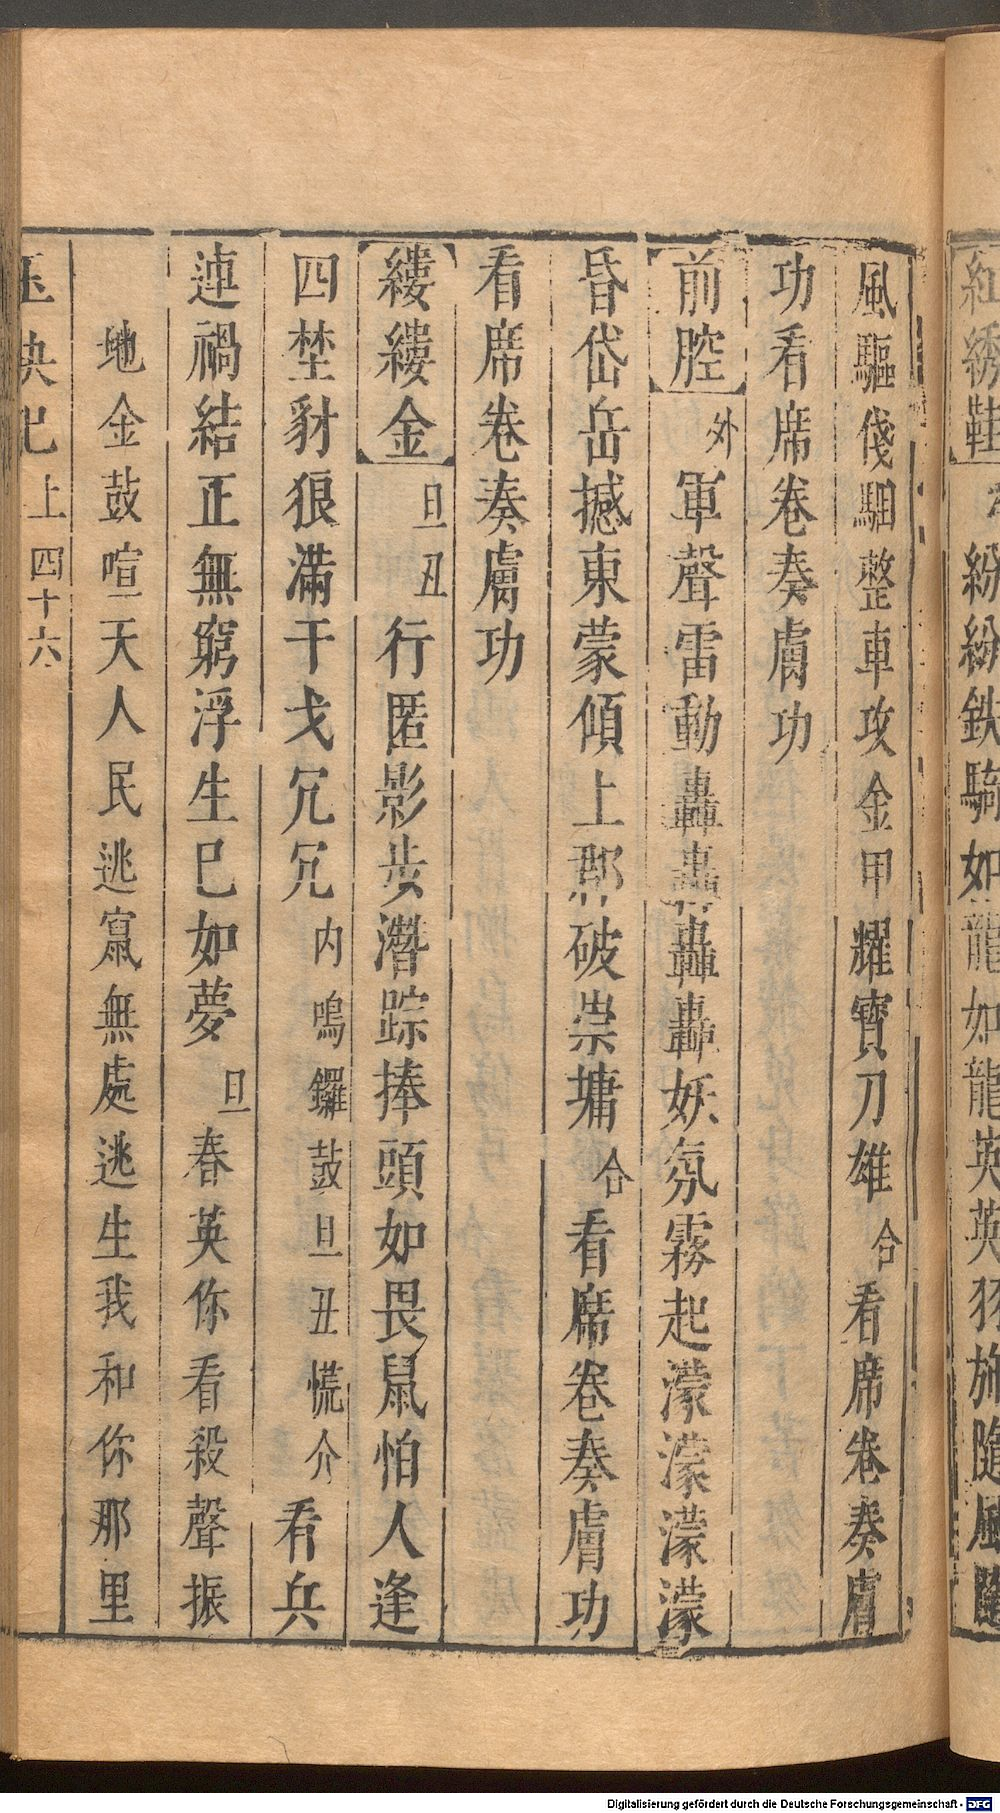 紅綉鞋 紛紛鉄騎如龍如龍英英羽旄隨風隨
風驅俴駟整車攻金甲耀寳刀雄合看席卷奏膚
功看席卷奏膚功
前腔外軍聲雷動轟轟轟轟妖氛霧起濛濛濛濛
昏岱岳撼東蒙傾上郡破崇墉合看席卷奏膚功
看席卷奏膚功
縷縷金旦丑行匿影步潛踪捧頭如畏鼠怕人逢
四埜豺狼滿干戈冗冗内鳴鑼鼓旦丑慌介看兵
連禍結正無窮浮生已如夢旦春英你看殺聲振
地金鼓喧天人民逃竄無處逃生我和你那里
玉玦記上四十六
Digitalisierung gefördert durch die Deutsche Forschungsgemeinschaft - DFG